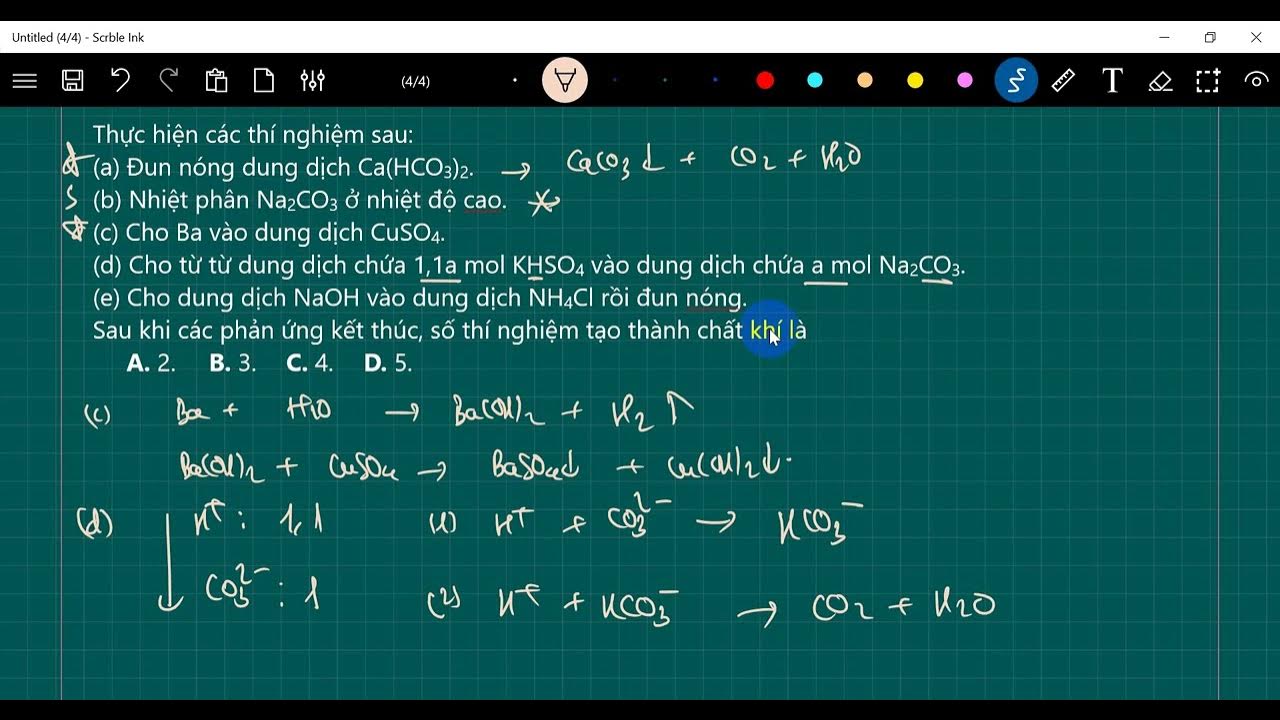 Untitled (4/4) - Scrble Ink
(4/4)
T
Thực hiện các thí nghiệm sau:
(a) Đun nóng dung dịch Ca(HCO₃)₂. → CaCO₃↓ + CO₂ + H₂O
(b) Nhiệt phân Na₂CO₃ ở nhiệt độ cao.
(c) Cho Ba vào dung dịch CuSO₄.
(d) Cho từ từ dung dịch chứa 1,1a mol KHSO₄ vào dung dịch chứa a mol Na₂CO₃.
(e) Cho dung dịch NaOH vào dung dịch NH₄Cl rồi đun nóng.
Sau khi các phản ứng kết thúc, số thí nghiệm tạo thành chất khí là
A. 2. B. 3. C. 4. D. 5.
(c) Ba + H₂O → Ba(OH)₂ + H₂ ↑
Ba(OH)₂ + CuSO₄ → BaSO₄↓ + Cu(OH)₂↓.
(d) H⁺ : 1,1 (1) H⁺ + CO₃²⁻ → HCO₃⁻
CO₃²⁻ : 1 (2) H⁺ + HCO₃⁻ → CO₂ + H₂O